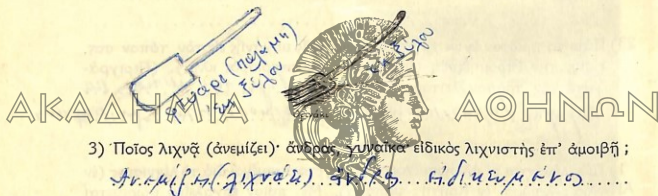 φτυάρι (παλάμη)
ἐκ ξύλου
ἐκ ξύλου
ΑΚΑΔΗΜΙΑ ΑΘΗΝΩΝ
3) Ποῖος λιχνᾷ (ἀνεμίζει)· ἄνδρας, γυναῖκα· εἰδικὸς λιχνιστὴς ἐπ’ ἀμοιβῇ ;
Ἀνεμίζει (λιχνάει) ἄνδρας εἰδικευμένος